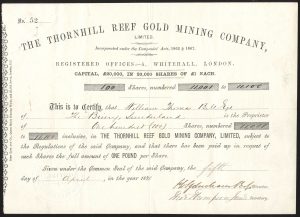 No. 52
THE THORNHILL REEF GOLD MINING COMPANY,
LIMITED.
Incorporated under the Companies' Acts, 1862 & 1867.
REGISTERED OFFICES:—4, WHITEHALL, LONDON.
CAPITAL, £20,000, IN 20,000 SHARES OF £1 EACH.
100 Shares, numbered 11,001 to 11,100
This is to Certify, that William Thomas
of The Sunderland is the Proprietor
of One hundred (100) Shares, numbered 11,001 to
11,100 inclusive, in THE THORNHILL REEF GOLD MINING COMPANY, LIMITED, subject
to the Regulations of the said Company, and that there has been paid up in respect of
such Shares the full amount of ONE POUND per Share.
Given under the Common Seal of the said Company, the fifth
day of April, in the year